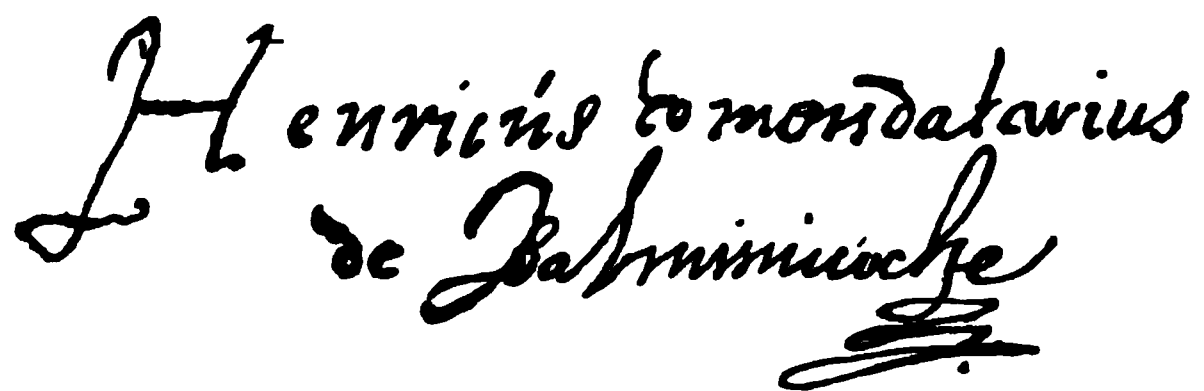 Henricus Comendatarius
de Balmirinoche